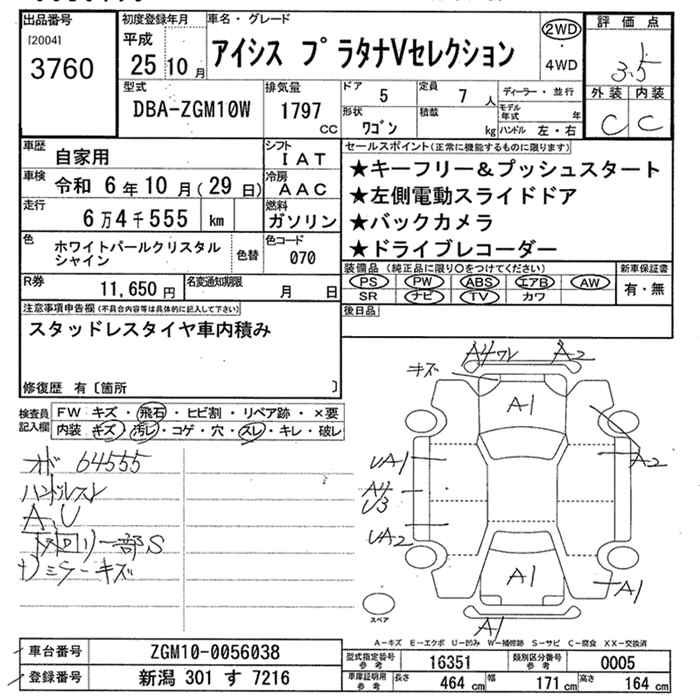 出品番号
[2004]
3760
初度登録年月
平成
25 10月
車名・グレード
アイシス プラタナVセレクション
2WD
・
4WD
評価点
3.5
外装 内装
C C
型式
DBA-ZGM10W
排気量
1797
cc
ドア
5
定員
7 人
形状
ワゴン
積載
kg
ディーラー・並行
モデル年式 年
ハンドル 左・右
車歴
自家用
シフト
IAT
車検
令和 6年10月(29日)
冷房
AAC
走行
6万4千555 km
燃料
ガソリン
色
ホワイトパールクリスタル
シャイン
色替
色コード
070
R券
11,650円
名変通知期限
月 日
セールスポイント(正常に機能するものに限ります)
★キーフリー&プッシュスタート
★左側電動スライドドア
★バックカメラ
★ドライブレコーダー
装備品(純正品に限り○をつけてください)
PS PW ABS エアB AW
SR ナビ TV カワ
新車保証書
有・無
後日品
注意事項申告欄(不具合内容等は具体的に記入して下さい)
スタッドレスタイヤ車内積み
修復歴 有〔箇所 〕
検査員
記入欄
FW キズ・飛石・ヒビ割・リペア跡・×要
内装 キズ・汚レ・コゲ・穴・スレ・キレ・破レ
64555
ハンドルスレ
A、U
リ一部S
ミラーキズ
A4ワレ
A2
キズ
A1
UA1
A2
A4
U3
UA2
A1
A1
A1
スペア
A-キズ E-エクボ U-凹み W-補修跡 S-サビ C-腐食 XX-交換済
車台番号
ZGM10-0056038
登録番号
新潟 301 す 7216
型式指定番号
参考
16351
類別区分番号
参考
0005
車庫証明用
参考
長さ
464 cm
幅
171 cm
高さ
164 cm